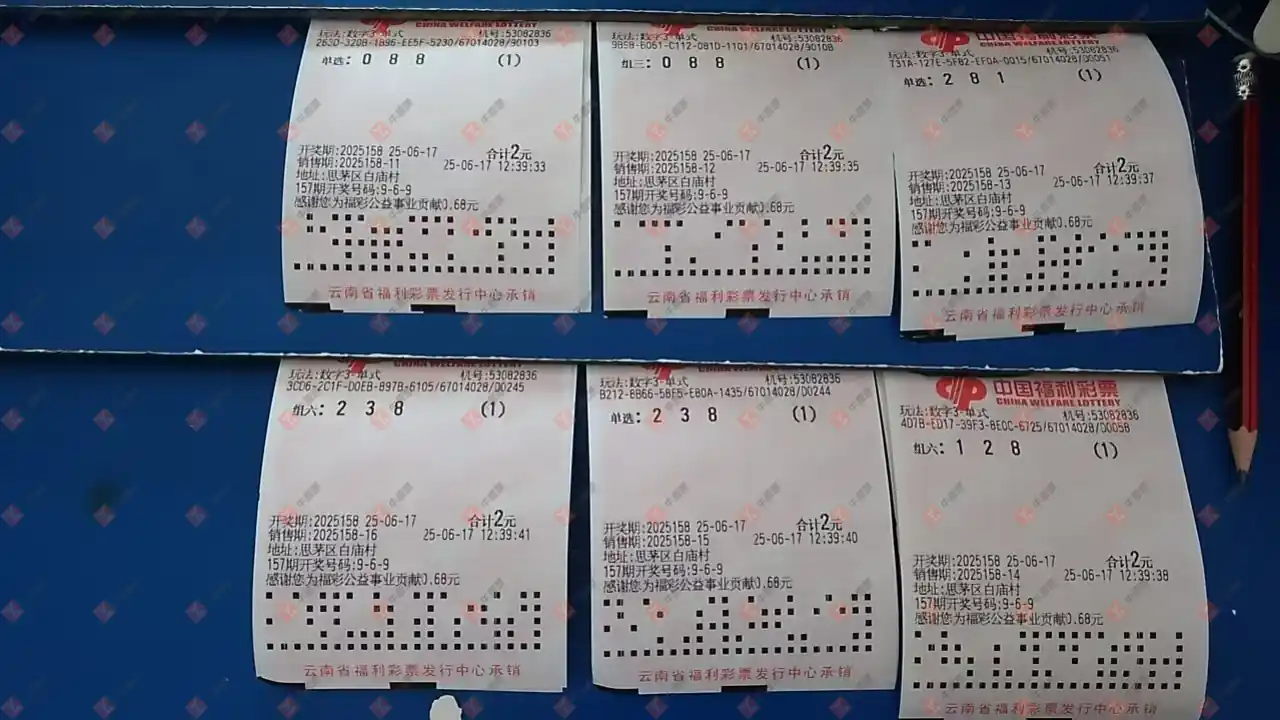 CHINA WELFARE LOTTERY
玩法:数字3-单式 机号:53082836
263D-320B-1B96-EE5F-5230/67014028/90103
单选: 0 8 8 (1)
开奖期:2025158 25-06-17 合计2元
销售期:2025158-11 25-06-17 12:39:33
地址:思茅区白庙村
157期开奖号码:9-6-9
感谢您为福彩公益事业贡献0.68元
云南省福利彩票发行中心承销
CHINA WELFARE LOTTERY
玩法:数字3-单式 机号:53082836
9B9B-B061-C112-081D-1101/67014028/90108
组三: 0 8 8 (1)
开奖期:2025158 25-06-17 合计2元
销售期:2025158-12 25-06-17 12:39:35
地址:思茅区白庙村
157期开奖号码:9-6-9
感谢您为福彩公益事业贡献0.68元
云南省福利彩票发行中心承销
中国福利彩票
CHINA WELFARE LOTTERY
玩法:数字3-单式 机号:53082836
731A-127E-5FB2-EF0A-0015/67014028/00051
单选: 2 8 1 (1)
开奖期:2025158 25-06-17 合计2元
销售期:2025158-13 25-06-17 12:39:37
地址:思茅区白庙村
157期开奖号码:9-6-9
感谢您为福彩公益事业贡献0.68元
云南省福利彩票发行中心承销
CHINA WELFARE LOTTERY
玩法:数字3-单式 机号:53082836
3CD6-2C1F-D0EB-897B-6105/67014028/00245
组六: 2 3 8 (1)
开奖期:2025158 25-06-17 合计2元
销售期:2025158-16 25-06-17 12:39:41
地址:思茅区白庙村
157期开奖号码:9-6-9
感谢您为福彩公益事业贡献0.68元
云南省福利彩票发行中心承销
CHINA WELFARE LOTTERY
玩法:数字3-单式 机号:53082836
B212-8B66-58F5-E80A-1435/67014028/00244
单选: 2 3 8 (1)
开奖期:2025158 25-06-17 合计2元
销售期:2025158-15 25-06-17 12:39:40
地址:思茅区白庙村
157期开奖号码:9-6-9
感谢您为福彩公益事业贡献0.68元
云南省福利彩票发行中心承销
中国福利彩票
CHINA WELFARE LOTTERY
玩法:数字3-单式 机号:53082836
4D7B-ED17-39F3-8E0C-6725/67014028/00058
组六: 1 2 8 (1)
开奖期:2025158 25-06-17 合计2元
销售期:2025158-14 25-06-17 12:39:38
地址:思茅区白庙村
157期开奖号码:9-6-9
感谢您为福彩公益事业贡献0.68元
云南省福利彩票发行中心承销